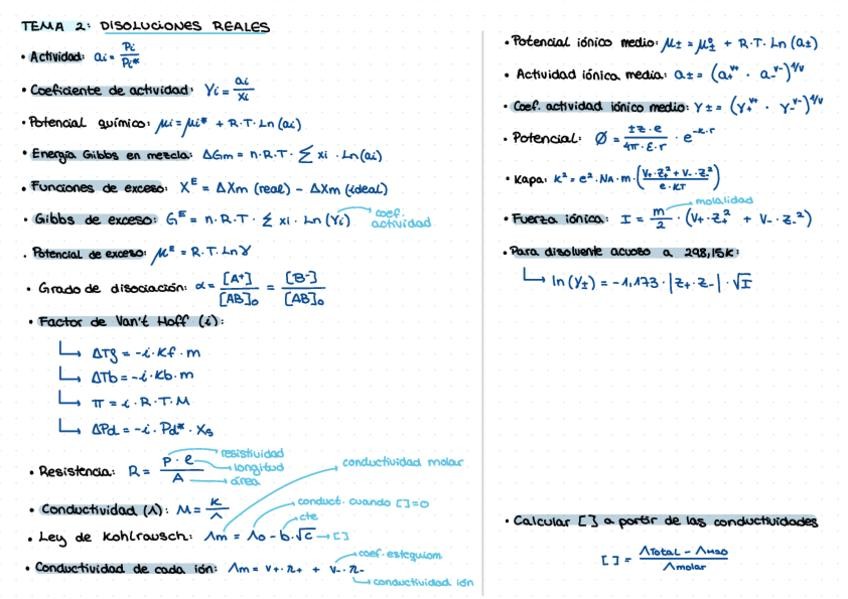 TEMA 2: DISOLUCIONES REALES
• Actividad: ai = Pi / Pi*
• Coeficiente de actividad: Yi = ai / xi
• Potencial químico: μi = μi* + R·T·Ln(ai)
• Energía Gibbs en mezcla: ΔGm = n·R·T·Σ xi·Ln(ai)
• Funciones de exceso: X^E = ΔXm (real) − ΔXm (ideal)
• Gibbs de exceso: G^E = n·R·T·Σ xi·Ln(Yi) → coef. actividad
• Potencial de exceso: μ^E = R·T·Lnγ
• Grado de disociación: α = [A⁺] / [AB]₀ = [B⁻] / [AB]₀
• Factor de Van't Hoff (i):
↳ ΔTf = -i·Kf·m
↳ ΔTb = -i·Kb·m
↳ π = i·R·T·M
↳ ΔPd = -i·Pd*·Xs
resistividad
longitud
área
• Resistencia: R = ρ·e / A
conductividad molar
• Conductividad (Λ): M = K / Λ
conduct. cuando []=0
cte
• Ley de Kohlrausch: Λm = Λo − b·√c → []
coef. estequiom
• Conductividad de cada ión: Λm = V+·π+ + V-·π-
conductividad ión
• Potencial iónico medio: μ± = μ±° + R·T·Ln(a±)
• Actividad iónica media: a± = (a+^V+ · a-^V-)^1/V
• Coef. actividad iónico medio: Y± = (Y+^V+ · Y-^V-)^1/V
• Potencial: Ø = ±z·e / 4π·ε·r · e^-k·r
• Kapa: K² = e²·NA·m·(V+·Z+² + V-·Z-² / e·KT)
molalidad
• Fuerza iónica: I = m/2 · (V+·Z+² + V-·Z-²)
• Para disolvente acuoso a 298,15K:
↳ ln(Y±) = -1,173·|Z+·Z-|·√I
• Calcular [] a partir de las conductividades
[] = ΛTotal − ΛH2O / Λmolar